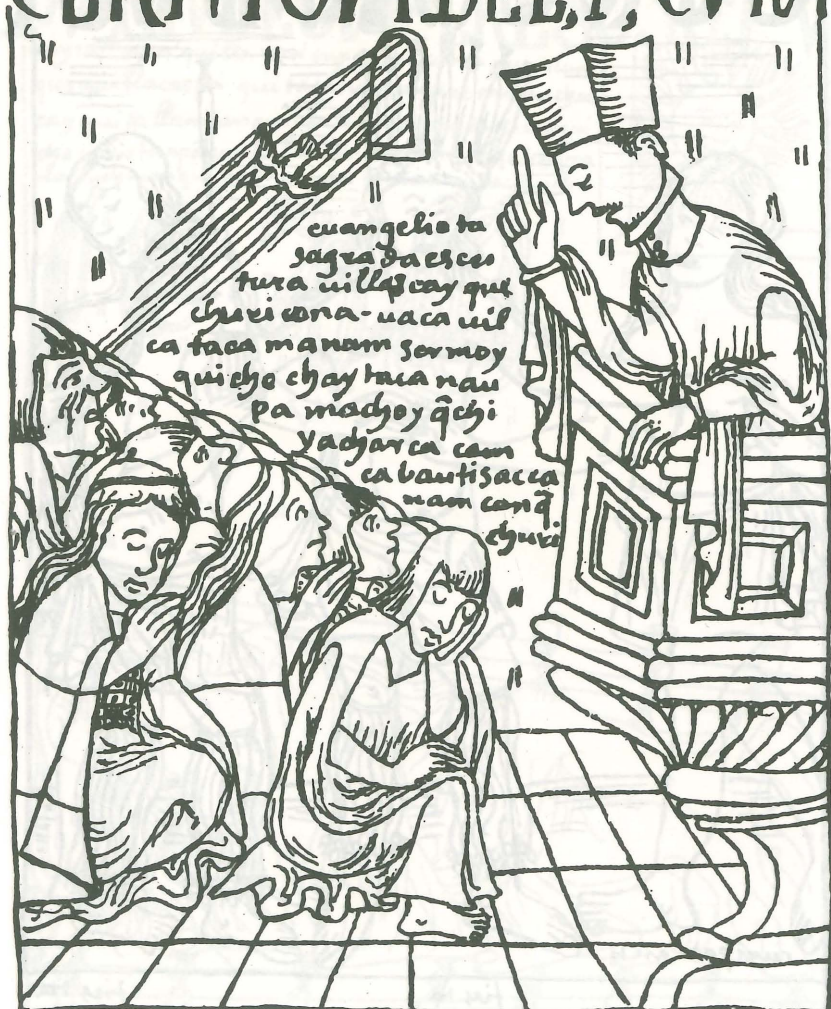 SERMTOPIDELE,P,CVRA
euangeliota
sagrada escri
tura uillascayque
churicona-uaca uil
ca taca manam sermoy
quicho chaytaca nau
pa machoyq̃chi
yacharca cam
ca bautisacca
nam canq̃
churi